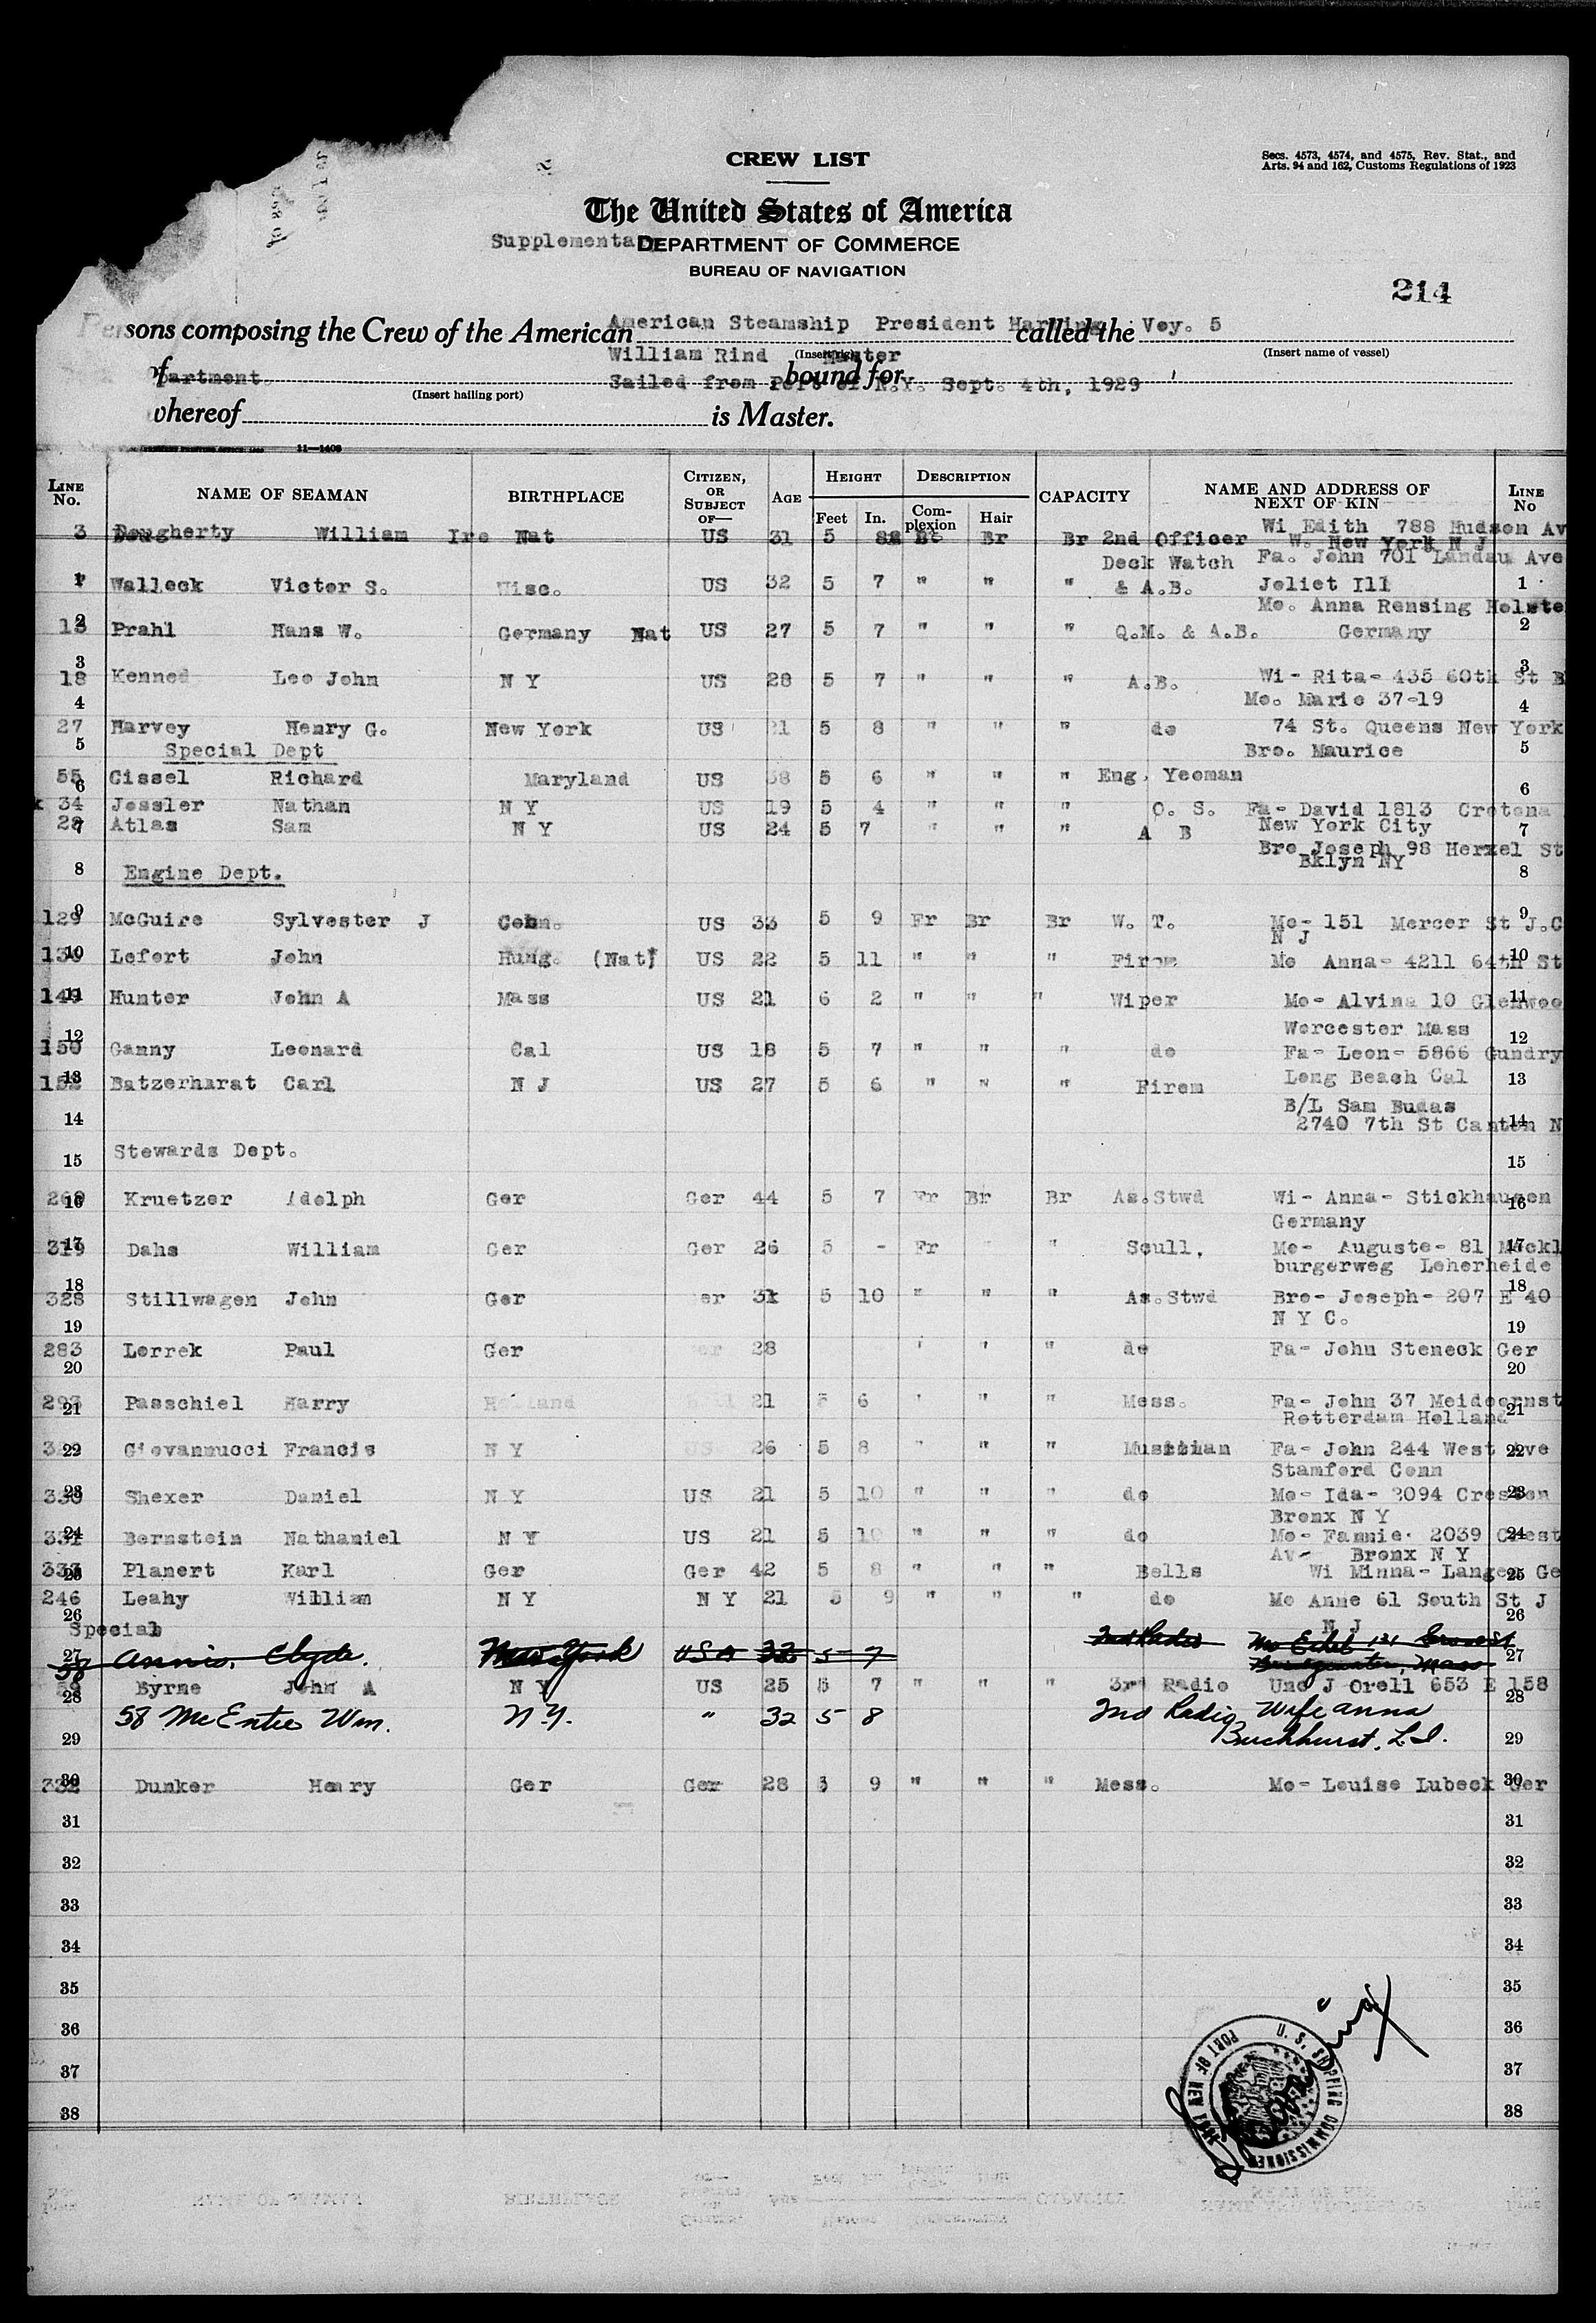 CREW LIST
Secs. 4573, 4574, and 4575, Rev. Stat., and
Arts. 94 and 162, Customs Regulations of 1923
The United States of America
Supplementa DEPARTMENT OF COMMERCE
BUREAU OF NAVIGATION
214
Persons composing the Crew of the American American Steamship President Harding called the Voy. 5
(Insert rig) (Insert name of vessel)
William Rind Master
of partment bound for
Sailed from Port of N.Y. Sept. 4th, 1929
(Insert hailing port)
whereof is Master.
11—1408
LINE No. NAME OF SEAMAN BIRTHPLACE CITIZEN, OR SUBJECT OF— AGE HEIGHT Feet In. DESCRIPTION Complexion Hair CAPACITY NAME AND ADDRESS OF NEXT OF KIN LINE No
3 Dougherty William Ire Nat US 31 5 Br Br 2nd Officer Wi Edith 788 Hudson Av
W. New York N J
Deck Watch Fa. John 701 Landau Ave
1 Walleck Victor S. Wisc. US 32 5 7 " " " & A.B. Joliet Ill 1
Mo. Anna Rensing Holste
2 13 Prahl Hans W. Germany Nat US 27 5 7 " " " Q.M. & A.B. Germany 2
3 18 Kenned Leo John N Y US 28 5 7 " " " A.B. Wi- Rita- 435 60th St B 3
4 Mo. Marie 37-19 4
27 Harvey Henry G. New York US 21 5 8 " " " do 74 St. Queens New York
5 Special Dept Bro. Maurice 5
55 6 Cissel Richard Maryland US 38 5 6 " " " Eng. Yeoman 6
34 Jessler Nathan N Y US 19 5 4 " " " O. S. Fa- David 1813 Crotona
28 7 Atlas Sam N Y US 24 5 7 " " " A B New York City 7
Bro Joseph 98 Herzel St
Bklyn NY
8 Engine Dept. 8
129 9 McGuire Sylvester J Conn. US 33 5 9 Fr Br Br W. T. Mo- 151 Mercer St J.C 9
N J
10 Lefert John Hung. (Nat) US 22 5 11 " " " Firem Mo Anna- 4211 64th St 10
11 Hunter John A Mass US 21 6 2 " " " Wiper Mo- Alvina 10 Glenwoo 11
12 Worcester Mass 12
150 Ganny Leonard Cal US 18 5 7 " " " do Fa- Leon- 5866 Gundry
13 Batzerharat Carl N J US 27 5 6 " " " Firem Long Beach Cal 13
B/L Sam Budas
14 2740 7th St Canton N 14
15 Stewards Dept. 15
16 Kruetzer Adolph Ger Ger 44 5 7 Fr Br Br As.Stwd Wi- Anna- Stickhausen 16
Germany
319 17 Dahs William Ger Ger 26 5 - Fr " Scull, Mo- Auguste- 81 Meckl 17
burgerweg Leherheide
18 328 Stillwagen John Ger er 31 5 10 " " " As.Stwd Bro- Joseph- 207 E 40 18
19 N Y C. 19
283 Lorrek Paul Ger 28 " " " do Fa- John Steneck Ger
20 20
293 21 Passchiel Harry Holland 21 5 6 " " " Mess. Fa- John 37 Meidoornst 21
Rotterdam Holland
22 Giovannucci Francis N Y US 26 5 8 " " " Musician Fa- John 244 West Ave 22
Stamford Conn
330 23 Shexer Daniel N Y US 21 5 10 " " " do Mo- Ida- 2094 Creston 23
Bronx N Y
331 24 Bernstein Nathaniel N Y US 21 5 10 " " " do Mo- Fannie- 2039 Crest 24
Av- Bronx N Y
333 25 Planert Karl Ger Ger 42 5 8 " " " Bells Wi Minna- Langen Ge 25
246 Leahy William N Y N Y 21 5 9 " " " do Mo Anne 61 South St J
26 N J 26
Special
27 58 Annis, Clyde. New York USA 32 5 7 2nd Radio Mo Ethel 131 Grove St 27
Bridgewater, Mass
59 Byrne John A N Y US 25 5 7 " " " 3rd Radio Unc J Orell 653 E 158
28 28
58 McEntee Wm. N.Y. " 32 5 8 2nd Radio Wife Anna
29 Buchhurst, L.I. 29
332 30 Dunker Henry Ger Ger 28 5 9 " " " Mess. Mo- Louise Lubeck Ger 30
31 31
32 32
33 33
34 34
35 35
36 36
37 37
38 38
U. S. SHIPPING COMMISSIONER PORT OF NEW YORK